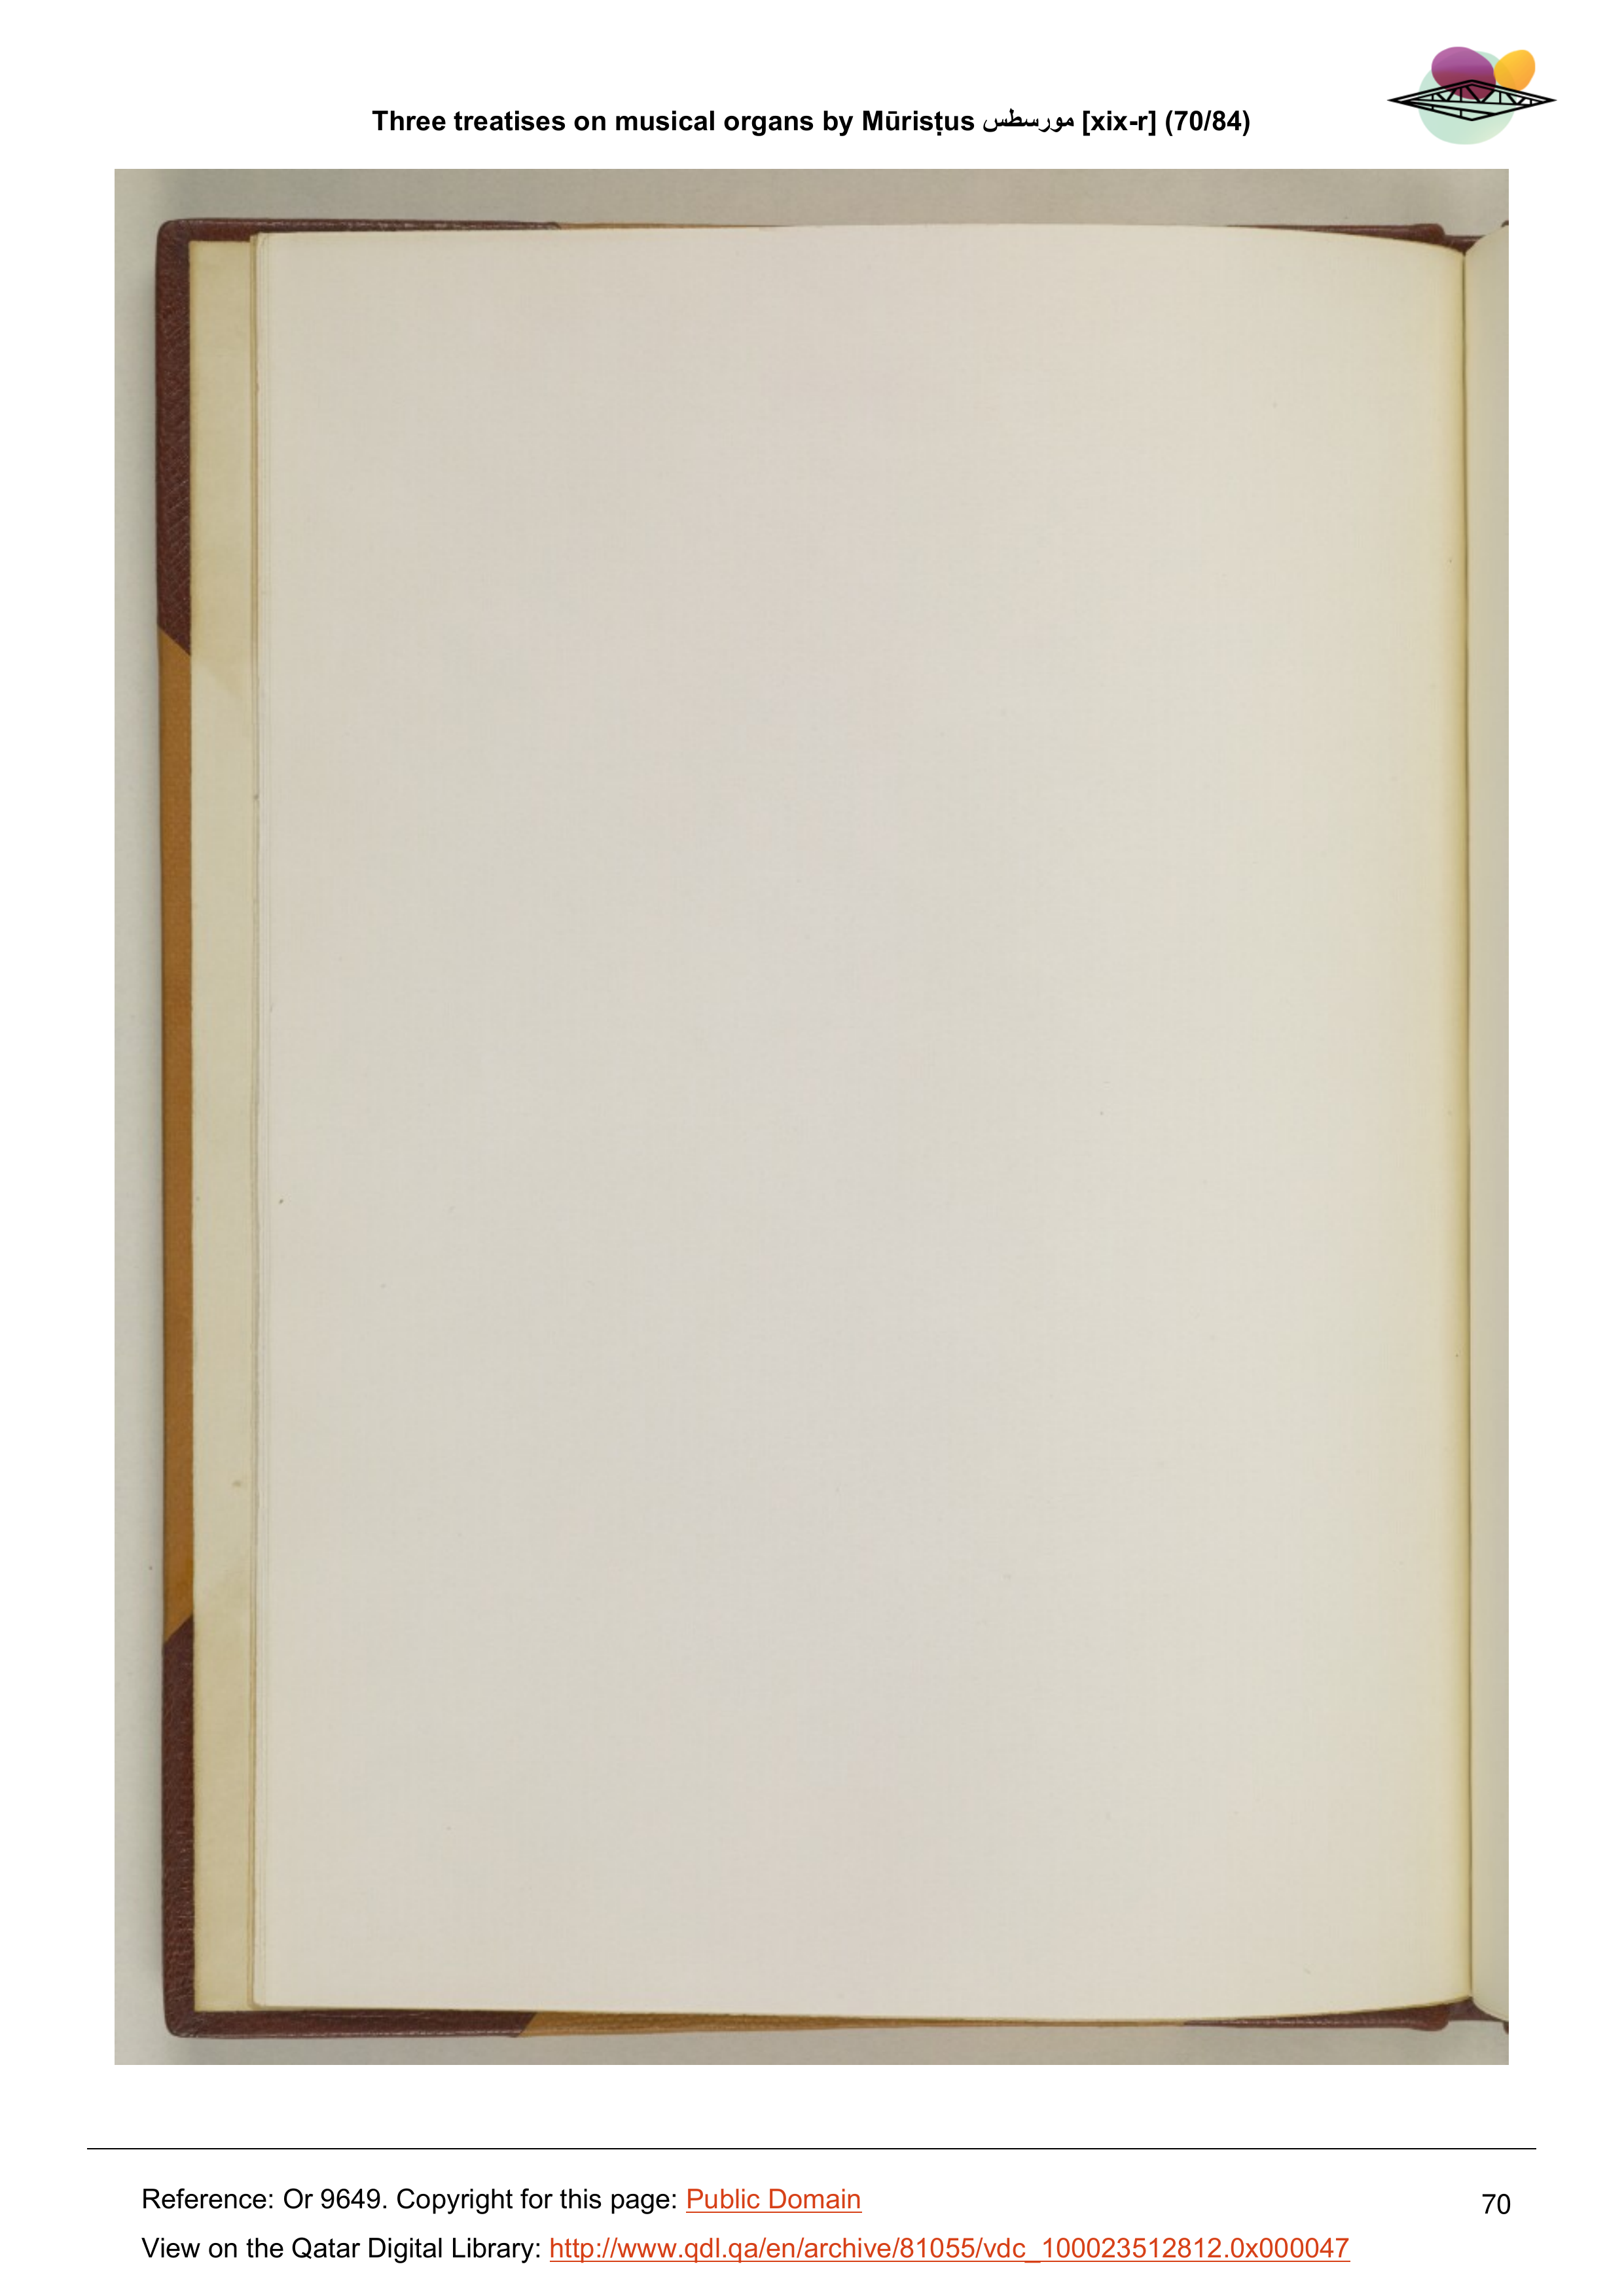 Three treatises on musical organs by Mūrisṭus مورسطس [xix-r] (70/84)
Reference: Or 9649. Copyright for this page: Public Domain
70
View on the Qatar Digital Library: http://www.qdl.qa/en/archive/81055/vdc_100023512812.0x000047